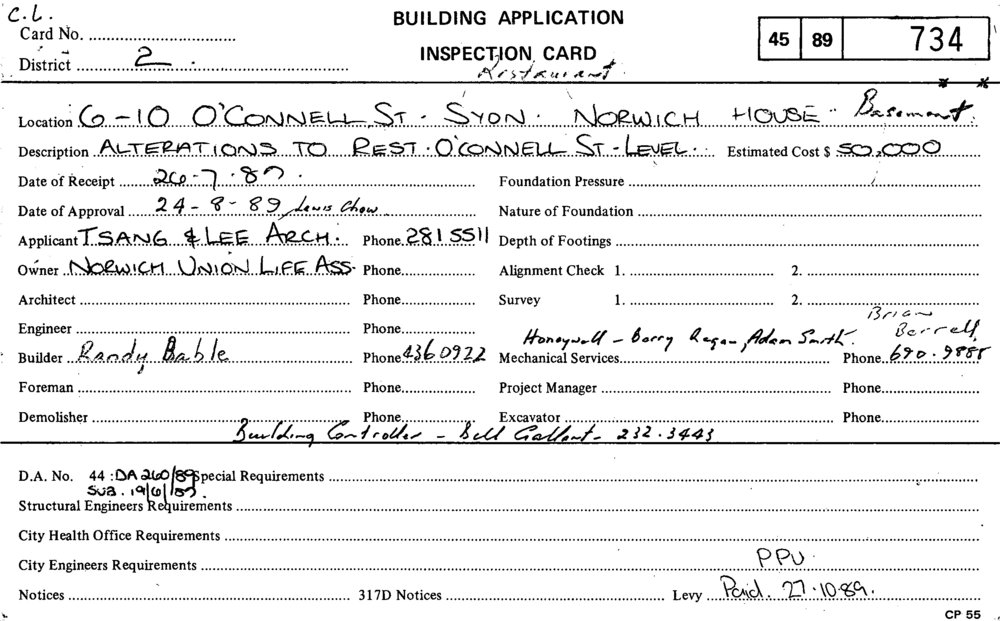 C.L.
BUILDING APPLICATION
Card No.
45 89 734
INSPECTION CARD
District 2
Restaurant
Location 6-10 O'CONNELL ST. SYDN. NORWICH HOUSE - Basement
Description ALTERATIONS TO REST. O'CONNELL ST. LEVEL. Estimated Cost $ 50,000
Date of Receipt 26-7-89. Foundation Pressure
Date of Approval 24-8-89 Lewis Chow Nature of Foundation
Applicant TSANG & LEE ARCH. Phone. 281 5511 Depth of Footings
Owner NORWICH UNION LIFE ASS. Phone Alignment Check 1. 2.
Architect Phone Survey 1. 2.
Brian
Engineer Phone Honeywell - Barry Regan, Adam Smith.
Builder Randy Bable Phone 436 0922 Mechanical Services Phone. 690.9888
Foreman Phone Project Manager Phone
Demolisher Phone Excavator Phone
Building Controller - Bill Gallant - 232.3443
D.A. No. 44: DA 260/89 Special Requirements
SUB. 19/6/89.
Structural Engineers Requirements
City Health Office Requirements
PPU.
City Engineers Requirements
Notices 317D Notices Levy Paid. 27.10.89.
CP 55